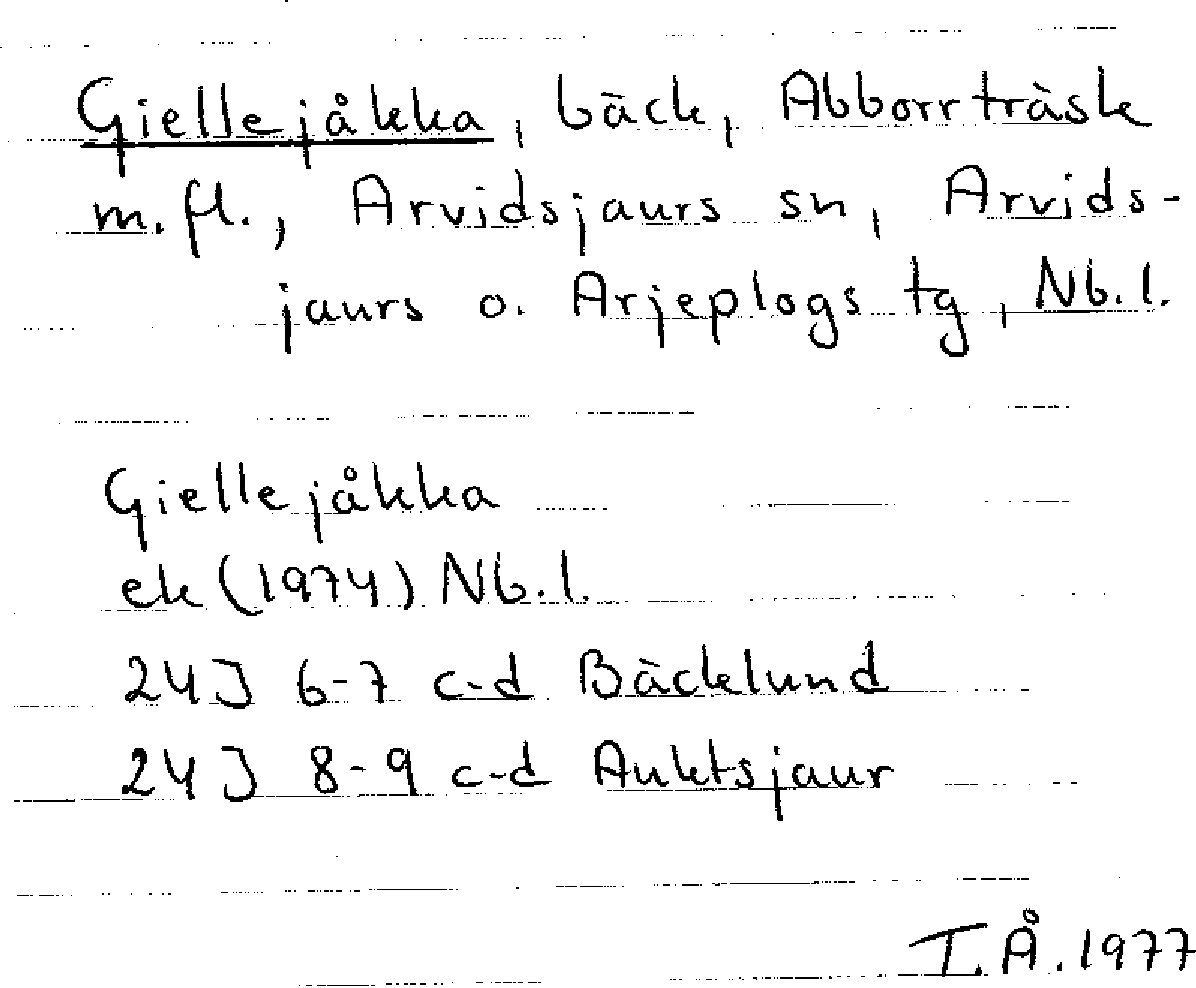 Giellejåkka, bäck, Abborrträsk
m.fl., Arvidsjaurs sn, Arvids-
jaurs o. Arjeplogs tg, Nb.l.
Giellejåkka
ek (1974) Nb.l.
24J 6-7 c-d Bäcklund
24J 8-9 c-d Auktsjaur
I.Å.1977